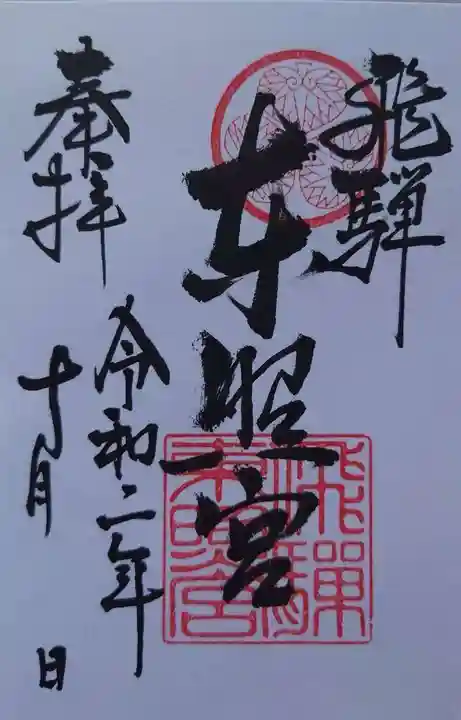 飛騨
東照宮
奉拝
令和二年
十月 日
飛騨
東照宮